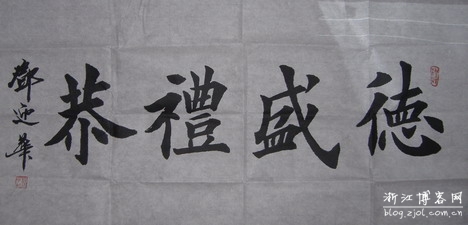 德盛禮恭
鄧迎華
浙江博客网
blog.zjol.com.cn